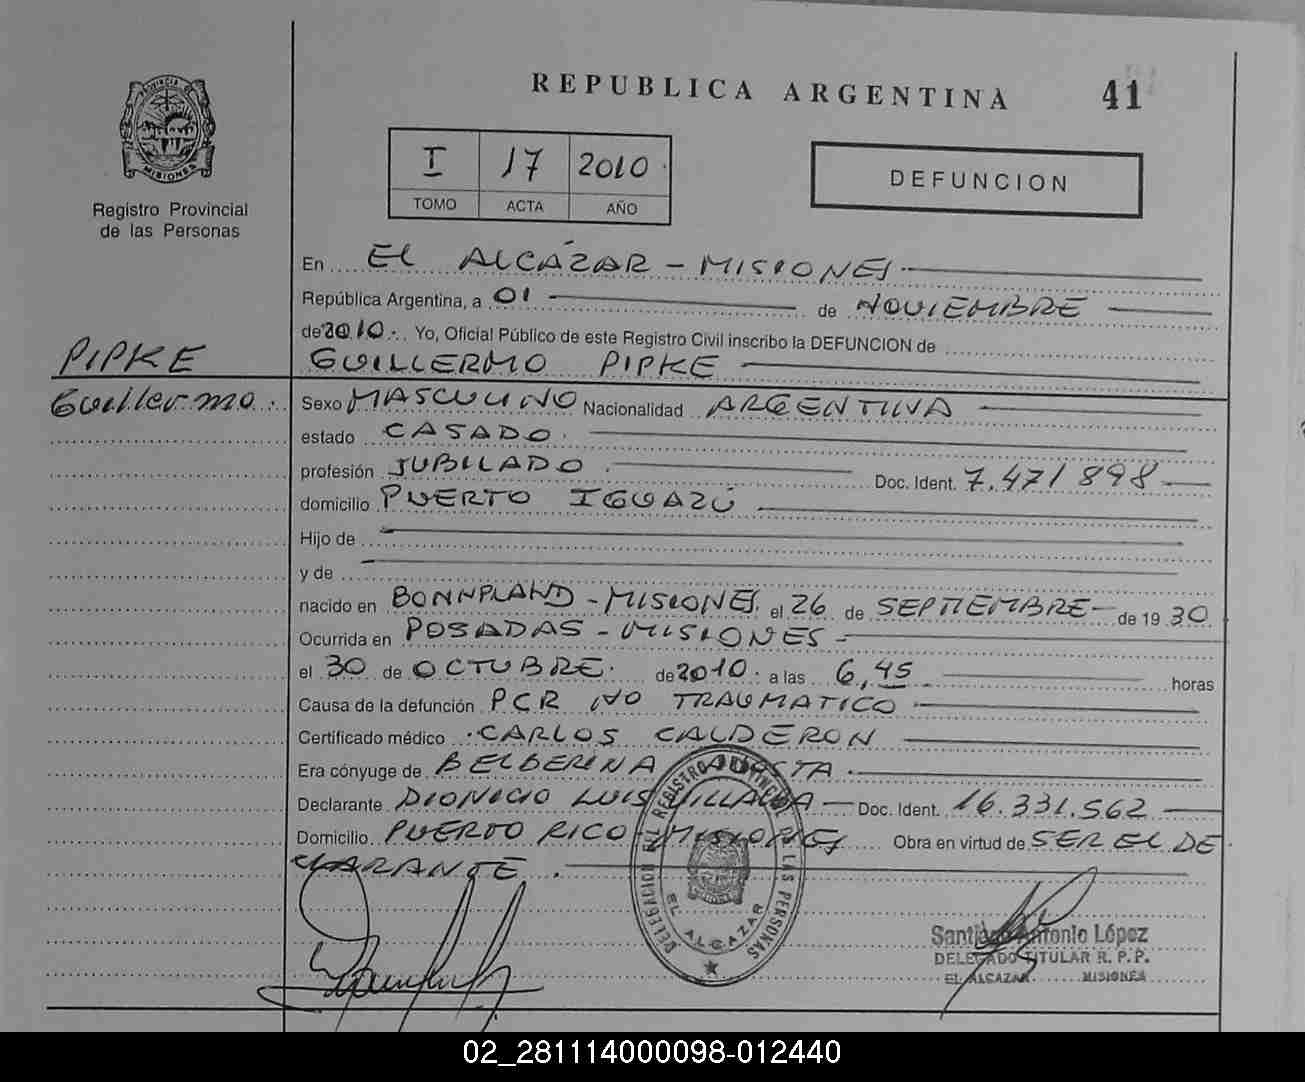 REPUBLICA ARGENTINA
41
I 17 2010
TOMO ACTA AÑO
DEFUNCION
PROVINCIA DE MISIONES
Registro Provincial
de las Personas
En EL ALCÁZAR - MISIONES
República Argentina, a 01 de NOVIEMBRE
de 2010. Yo, Oficial Público de este Registro Civil inscribo la DEFUNCION de
PIPKE
GUILLERMO PIPKE
Guillermo
Sexo MASCULINO Nacionalidad ARGENTINA
estado CASADO
profesión JUBILADO Doc. Ident. 7.471898
domicilio PUERTO IGUAZÚ
Hijo de
y de
nacido en BONNPLAND - MISIONES el 26 de SEPTIEMBRE de 1930
Ocurrida en POSADAS - MISIONES
el 30 de OCTUBRE de 2010 a las 6,45 horas
Causa de la defunción PCR NO TRAUMATICO
Certificado médico CARLOS CALDERON
Era cónyuge de BELBERINA
Declarante DIONICIO LUIS VILLALBA Doc. Ident. 16.331.562
Domicilio PUERTO RICO - MISIONES Obra en virtud de SER EL DE
CLARANTE.
DELEGACION DEL REGISTRO PROVINCIAL DE LAS PERSONAS
EL ALCAZAR
Santiago Antonio López
DELEGADO TITULAR R. P. P.
EL ALCAZAR MISIONES
02_281114000098-012440